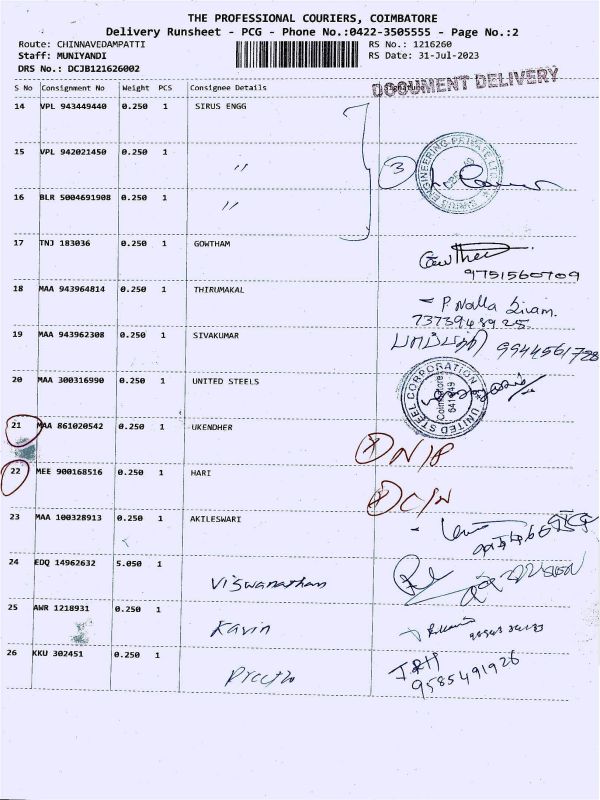 THE PROFESSIONAL COURIERS, COIMBATORE
Delivery Runsheet - PCG - Phone No.:0422-3505555 - Page No.:2
Route: CHINNAVEDAMPATTI RS No.: 1216260
Staff: MUNIYANDI RS Date: 31-Jul-2023
DRS No.: DCJB121626002
DOCUMENT DELIVERY
S No Consignment No Weight PCS Consignee Details Signature
14 VPL 943449440 0.250 1 SIRUS ENGG
15 VPL 942021450 0.250 1 〃
3
SIRUS ENGINEERING PRIVATE LTD
16 BLR 5004691908 0.250 1 〃
17 TNJ 183036 0.250 1 GOWTHAM Gowtham
9751560709
18 MAA 943964814 0.250 1 THIRUMAKAL P. Nalla Sivam.
7373948925
19 MAA 943962308 0.250 1 SIVAKUMAR 9944561728
20 MAA 300316990 0.250 1 UNITED STEELS
UNITED STEEL CORPORATION
Coimbatore
641 049
21 MAA 861020542 0.250 1 UKENDHER N/P
22 MEE 900168516 0.250 1 HARI C/N
23 MAA 100328913 0.250 1 AKILESWARI
24 EDQ 14962632 5.050 1 Viswanathan
25 AWR 1218931 0.250 1 Kavin
26 KKU 302451 0.250 1 Preetha J.RH
9585491926